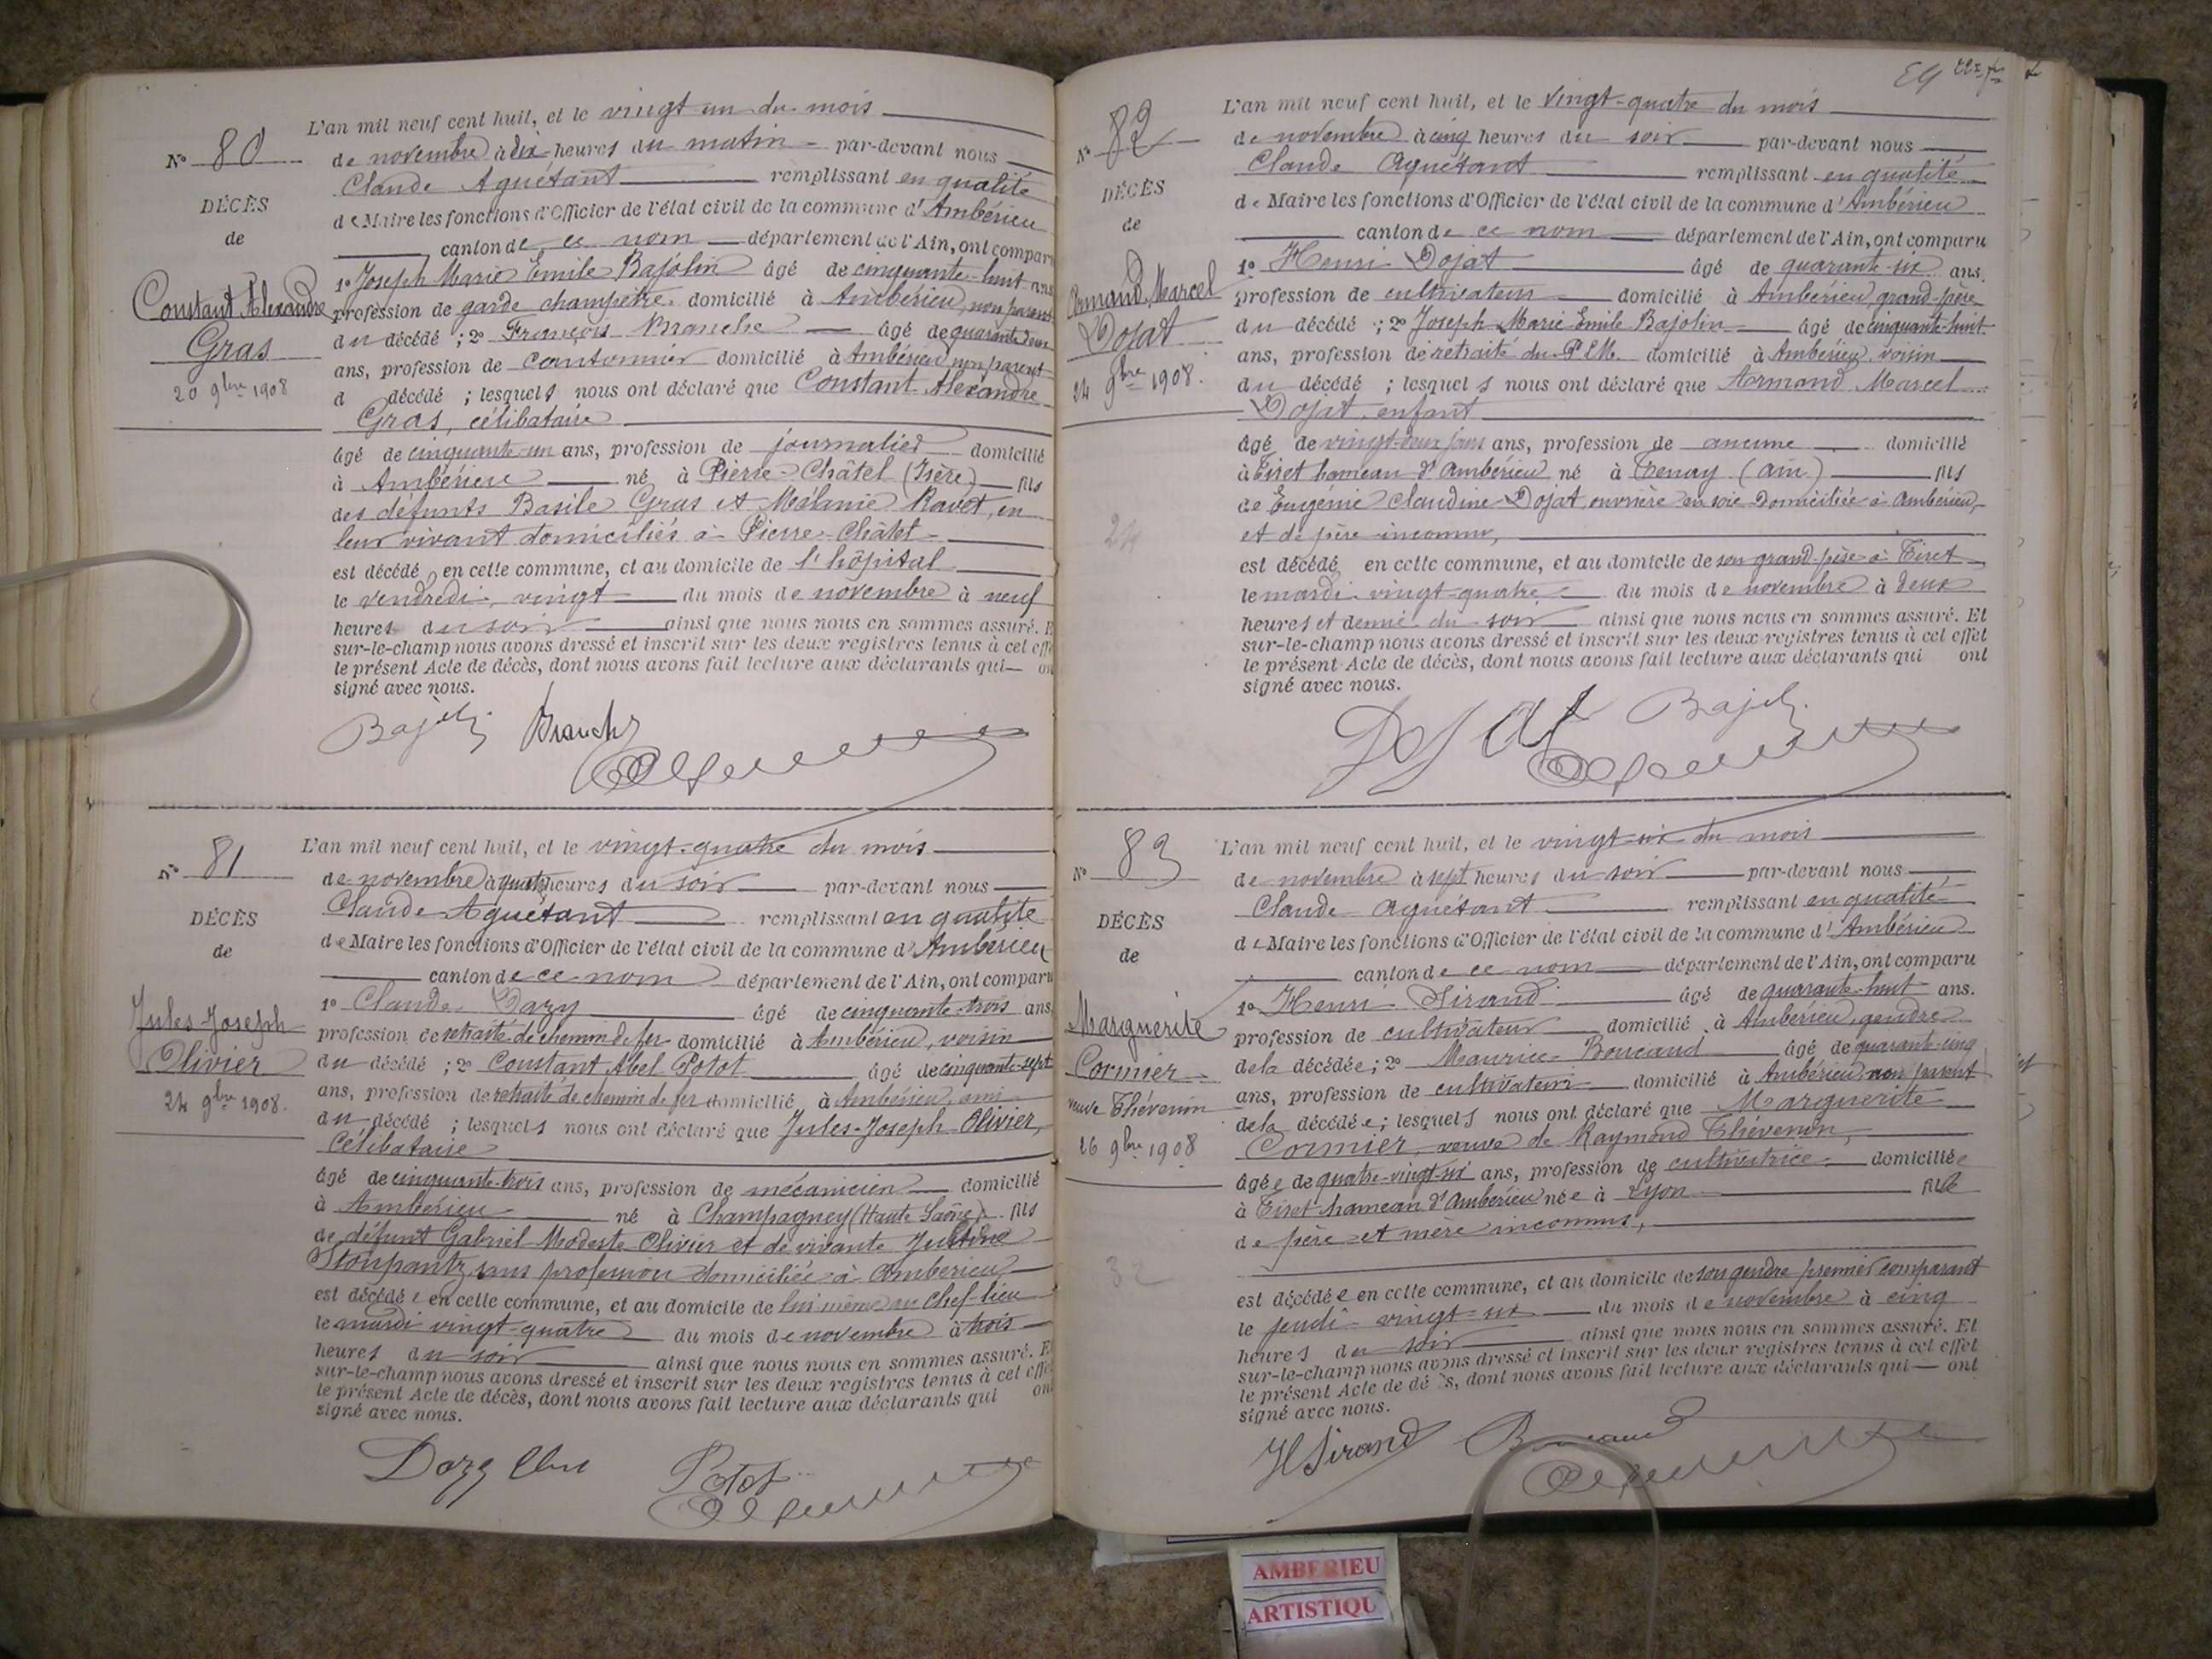 L'an mil neuf cent huit, et le vingt un du mois
N° 80
de novembre à dix heures du matin par-devant nous
Claude Aguétant remplissant en qualité
DÉCÈS
de Maire les fonctions d'Officier de l'état civil de la commune d'Ambérieu
de
canton de ce nom département de l'Ain, ont compar
1° Joseph Marie Emile Bajolin âgé de cinquante-huit ans
Constant Alexandre
profession de garde champêtre domicilié à Ambérieu, non parent
Gras
du décédé ; 2° François Branche âgé de quarante deux
20 9bre 1908
ans, profession de cantonnier domicilié à Ambérieu non parent
d décédé ; lesquels nous ont déclaré que Constant Alexandre
Gras, célibataire
âgé de cinquante-un ans, profession de journalier domicilié
à Ambérieu né à Pierre-Châtel (Isère) fils
des défunts Basile Gras et Mélanie Ravet, en
leur vivant domiciliés à Pierre-Châtel
est décédé en cette commune, et au domicile de l'hôpital
le vendredi vingt du mois de novembre à neuf
heures du soir ainsi que nous nous en sommes assuré. E
sur-le-champ nous avons dressé et inscrit sur les deux registres tenus à cet effe
le présent Acte de décès, dont nous avons fait lecture aux déclarants qui on
signé avec nous.
Bajolin Branche
L'an mil neuf cent huit, et le vingt-quatre du mois
N° 81
de novembre à quatre heures du soir par-devant nous
Claude Aguétant remplissant en qualité
DÉCÈS
de Maire les fonctions d'Officier de l'état civil de la commune d'Ambérieu
de
canton de ce nom département de l'Ain, ont comparu
1° Claude Dazy âgé de cinquante-trois ans
Jules-Joseph
profession de retraité de chemin de fer domicilié à Ambérieu, voisin
Olivier
du décédé ; 2° Constant Abel Potot âgé de cinquante-sept
24 9bre 1908.
ans, profession de retraité de chemin de fer domicilié à Ambérieu, ami
du décédé ; lesquels nous ont déclaré que Jules-Joseph Olivier,
Célibataire
âgé de cinquante-trois ans, profession de mécanicien domicilié
à Ambérieu né à Champagney (Haute Saône) fils
de défunt Gabriel Modeste Olivier et de vivante Justine
sans profession domiciliée à Ambérieu
est décédé en cette commune, et au domicile de lui même au Chef-lieu
le mardi vingt-quatre du mois de novembre à trois
heures du soir ainsi que nous nous en sommes assuré. E
sur-le-champ nous avons dressé et inscrit sur les deux registres tenus à cet effe
le présent Acte de décès, dont nous avons fait lecture aux déclarants qui ont
signé avec nous.
Potot
L'an mil neuf cent huit, et le vingt-quatre du mois
N° 82
de novembre à cinq heures du soir par-devant nous
Claude Aguétant remplissant en qualité
DÉCÈS
de Maire les fonctions d'Officier de l'état civil de la commune d'Ambérieu
de
canton de ce nom département de l'Ain, ont comparu
1° Henri Dojat âgé de quarante-six ans.
Armand Marcel
profession de cultivateur domicilié à Ambérieu, grand-père
Dojat
du décédé ; 2° Joseph Marie Emile Bajolin âgé de cinquante-huit
24 9bre 1908.
ans, profession de retraité du P.L.M. domicilié à Ambérieu, voisin
du décédé ; lesquels nous ont déclaré que Armand Marcel
Dojat enfant
âgé de vingt-deux jours ans, profession de aucune domicilié
à Tiret hameau d'Ambérieu né à Tenay (Ain) fils
de Eugénie Claudine Dojat ouvrière en soie domiciliée à Ambérieu,
24
et de père inconnu,
est décédé en cette commune, et au domicile de son grand-père à Tiret
le mardi vingt-quatre du mois de novembre à deux
heures et demie du soir ainsi que nous nous en sommes assuré. Et
sur-le-champ nous avons dressé et inscrit sur les deux registres tenus à cet effet
le présent Acte de décès, dont nous avons fait lecture aux déclarants qui ont
signé avec nous.
Dojat Bajolin
L'an mil neuf cent huit, et le vingt-six du mois
N° 83
de novembre à sept heures du soir par-devant nous
Claude Aguétant remplissant en qualité
DÉCÈS
de Maire les fonctions d'Officier de l'état civil de la commune d'Ambérieu
de
canton de ce nom département de l'Ain, ont comparu
1° Henri Sirand âgé de quarante-huit ans.
Marguerite
profession de cultivateur domicilié à Ambérieu, gendre
Cormier
de la décédée ; 2° Maurice Boucaud âgé de quarante-cinq
veuve Thévenin
ans, profession de cultivateur domicilié à Ambérieu, non parent
26 9bre 1908
de la décédée ; lesquels nous ont déclaré que Marguerite
Cormier, veuve de Raymond Thévenin,
âgée de quatre-vingt-six ans, profession de cultivatrice domiciliée
à Tiret hameau d'Ambérieu née à Lyon fille
de père et mère inconnus,
32
est décédée en cette commune, et au domicile de son gendre premier comparant
le jeudi vingt-six du mois de novembre à cinq
heures du soir ainsi que nous nous en sommes assuré. Et
sur-le-champ nous avons dressé et inscrit sur les deux registres tenus à cet effet
le présent Acte de décès, dont nous avons fait lecture aux déclarants qui ont
signé avec nous.
H Sirand Boucaud
AMBERIEU
ARTISTIQU